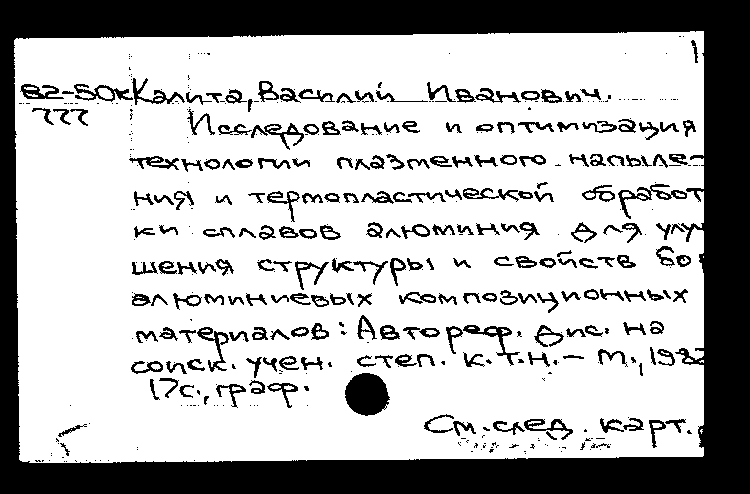 82-50к Калита, Василий Иванович.
777
Исследование и оптимизация
технологии плазменного напыле-
ния и термопластической обработ
ки сплавов алюминия для улуч
шения структуры и свойств бор
алюминиевых композиционных
материалов: Автореф. дис. на
соиск. учен. степ. к.т.н. – М., 1982
17с., граф.
См. след. карт.